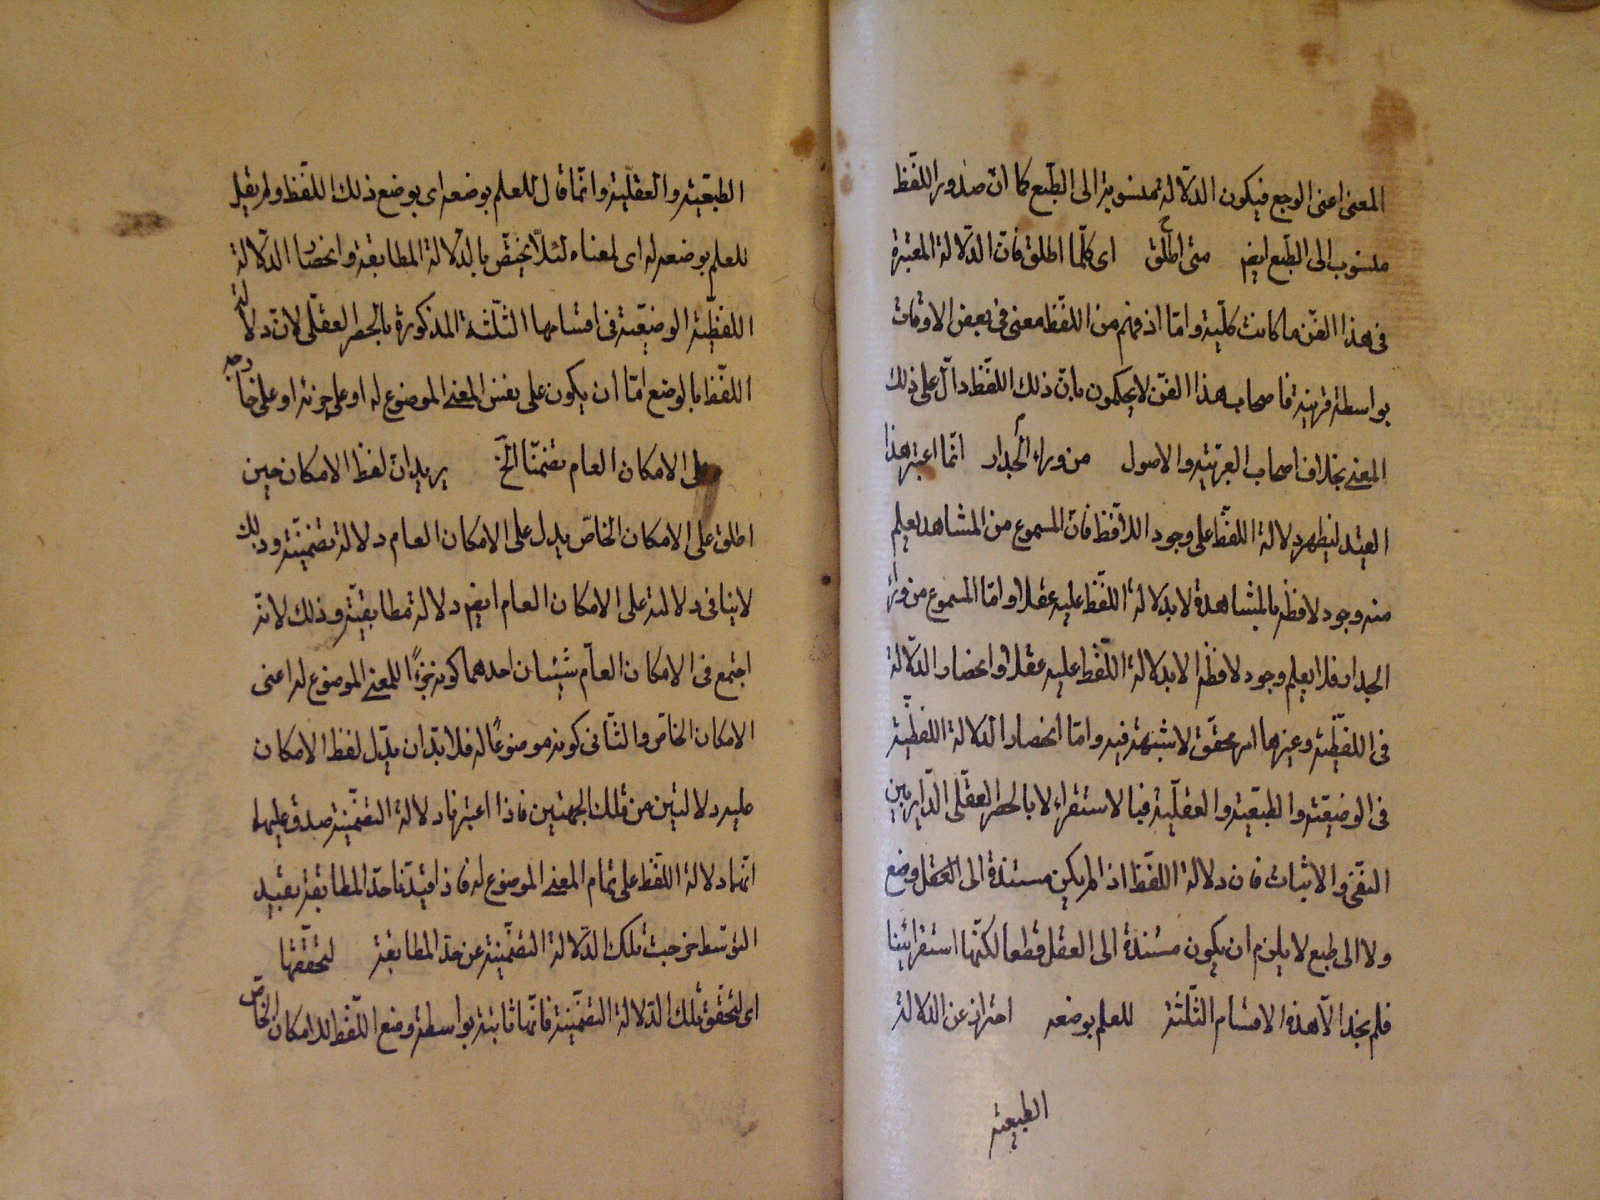 المعنى اعنى الوجع فيكون الدلالة منسوبة الى الطبع كما ان صدور اللفظ
منسوب الى الطبع ايضم متى اطلق اى كلما اطلق فان الدلالة المعتبرة
فى هذا الفن ما كانت كلية واما اذ فهم من اللفظ معنى فى بعض الاوقات
بواسطة قرينة فاصحاب هذا الفن لا يحكمون بان ذلك اللفظ دال على ذلك
المعنى بخلاف اصحاب العربية والاصول من وراء الجدار انما اعتبر هذا
القيد ليظهر دلالة اللفظ على وجود اللافظ فان المسموع من المشاهد يعلم
منه وجود لافظه بالمشاهدة لا بدلالة اللفظ عليه عقلا واما المسموع من وراء
الجدار فلا يعلم وجود لافظه الا بدلالة اللفظ عليه عقلا وانحصار الدلالة
فى اللفظية وغيرها امر محقق لا شبهة فيه واما انحصار الدلالة اللفظية
فى الوضعية والطبيعية والعقلية فبالاستقراء لا بالحصر العقلى الداير بين
النفى والاثبات فان دلالة اللفظ اذا لم يكن مستندة الى العقل وضع
ولا الى طبع لا يلزم ان يكون مستندة الى العقل قطعا لكنها استقرائينا
فلم نجد الا هذه الاقسام الثلثة للعلم بوضعه احتراز عن الدلالة
الطبيعية
الطبيعية والعقلية وانما قال للعلم بوضعه اى بوضع ذلك اللفظ ولم يقل
للعلم بوضعه له اى لمعناه لئلا يختص بالدلالة المطابقة وانحصار الدلالة
اللفظية الوضعية فى اقسامها الثلثة المذكورة بالحصر العقلى لان دلالة
اللفظ بالوضع اما ان يكون على نفس المعنى الموضوع له او على جزئه او على خارجه
على الامكان العام تضمنا الخ يريد ان لفظ الامكان حين
اطلق على الامكان الخاص يدل على الامكان العام دلالة تضمنية وذلك
لا ينافى دلالته على الامكان العام ايضم دلالة مطابقية وذلك لانه
اجتمع فى الامكان العام شيئان احدهما كونه جزءا للمعنى الموضوع له اعنى
الامكان الخاص والثانى كونه موضوعا له فلا بد ان يدل لفظ الامكان
عليه دلالتين من تلك الجهتين فاذا اعتبرنا دلالة التضمنية صدق عليها
انها دلالة اللفظ على تمام المعنى الموضوع له فاذا قيدنا حد المطابقة بقيد
التوسط خرجت تلك الدلالة التضمنية عن حد المطابقة لتحققها
اى لتحقق تلك الدلالة التضمنية فانها ثابتة بواسطة وضع اللفظ للامكان الخاص